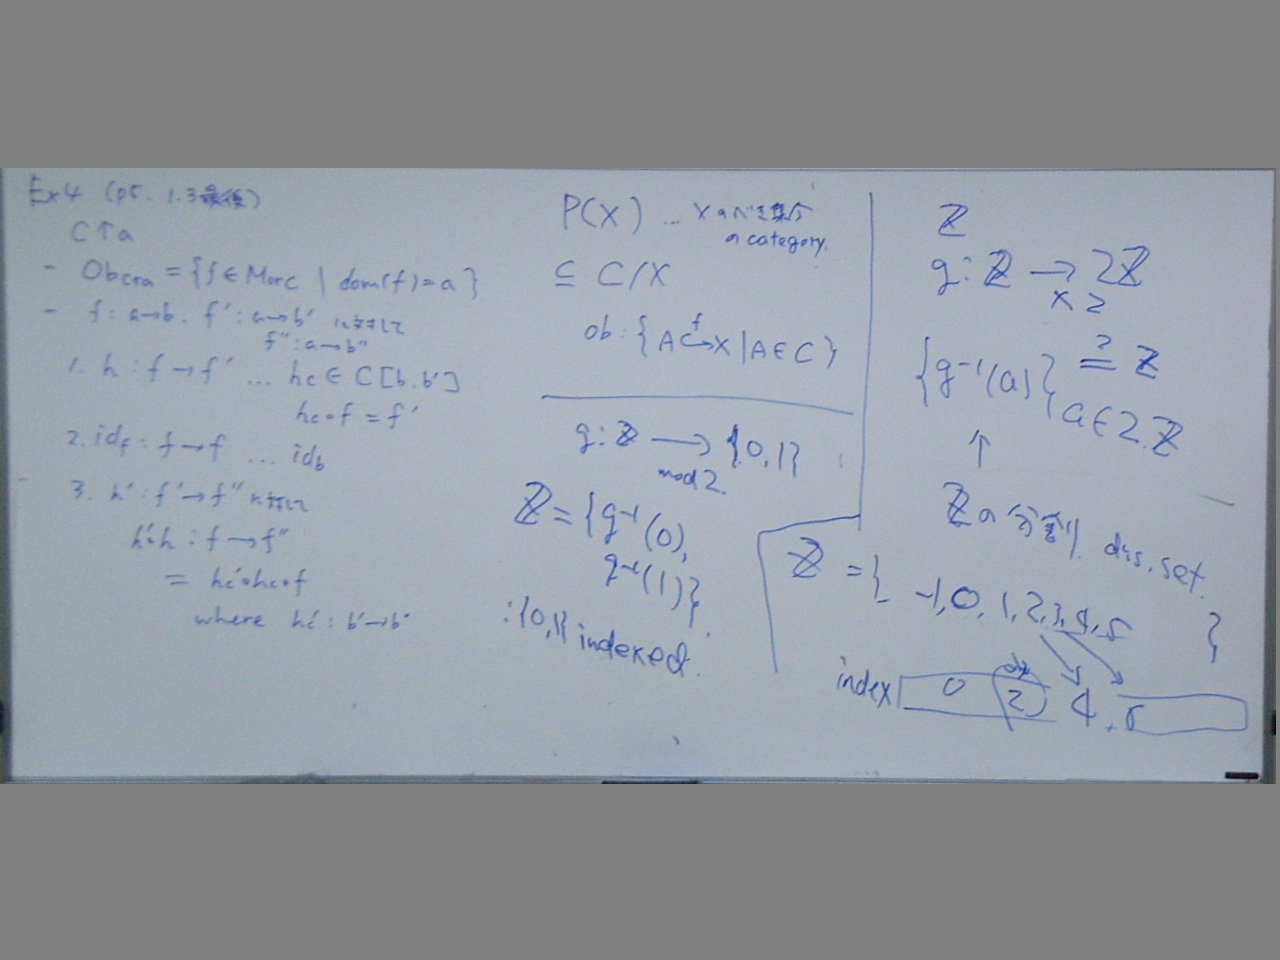 Ex4 (p5. 1.3最後)
C↑a
- Ob_{C↑a} = {f ∈ Mor_C | dom(f)=a}
- f: a→b. f': a→b' に対して
f'': a→b''
1. h : f → f' ... h_C ∈ C[b, b']
h_C∘f = f'
2. id_f : f → f ... id_b
3. h' : f' → f'' に対して
h'∘h : f → f''
= h_C'∘h_C∘f
where h_C' : b'→b''
P(X) ... Xのべき集合
の category.
⊆ C/X
ob : {A ↪^f X | A ∈ C}
g: ℤ → {0,1}
mod 2.
ℤ = {g⁻¹(0),
g⁻¹(1)}.
: {0,1} indexed.
ℤ
g: ℤ → 2ℤ
×2
{g⁻¹(a)}_{a∈2ℤ} ≟ ℤ
↑
ℤの分割 dis. set.
ℤ = { -1, 0, 1, 2, 3, 4, 5 }
index 0 2 4, 5